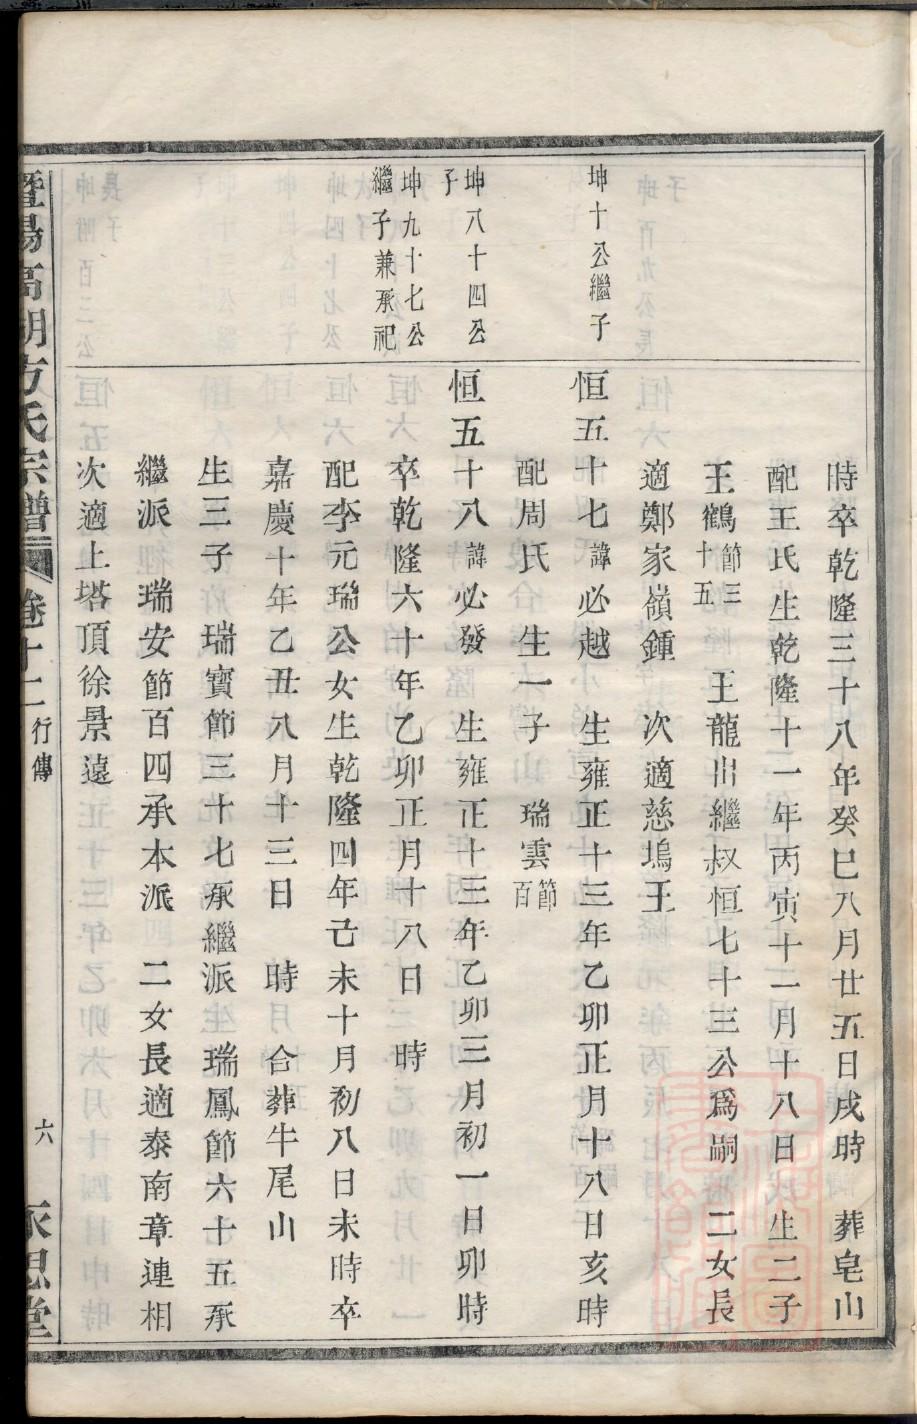 時卒乾隆三十八年癸巳八月廿五日戌時 葬皂山
配王氏生乾隆十一年丙寅十一月十八日 生二子
王鶴節三十五 王龍出繼叔恒七十三公爲嗣 二女長
適鄭家嶺鍾 次適慈塢王
坤十公繼子
恒五十七諱必越 生雍正十三年乙卯正月十八日亥時
配周氏 生一子 瑞雲節百
坤八十四公
子
恒五十八諱必發 生雍正十三年乙卯三月初一日卯時
坤九十七公
繼子兼承祀
卒乾隆六十年乙卯正月十八日 時
配李元瑞公女生乾隆四年己未十月初八日未時卒
嘉慶十年乙丑八月十三日 時 合葬牛尾山
生三子 瑞寶節三十七承繼派 瑞鳳節六十五承
繼派 瑞安節百四承本派 二女長適泰南章連相
次適上塔頂徐景遠
暨陽高湖方氏宗譜 卷十二 行傳 六 永思堂